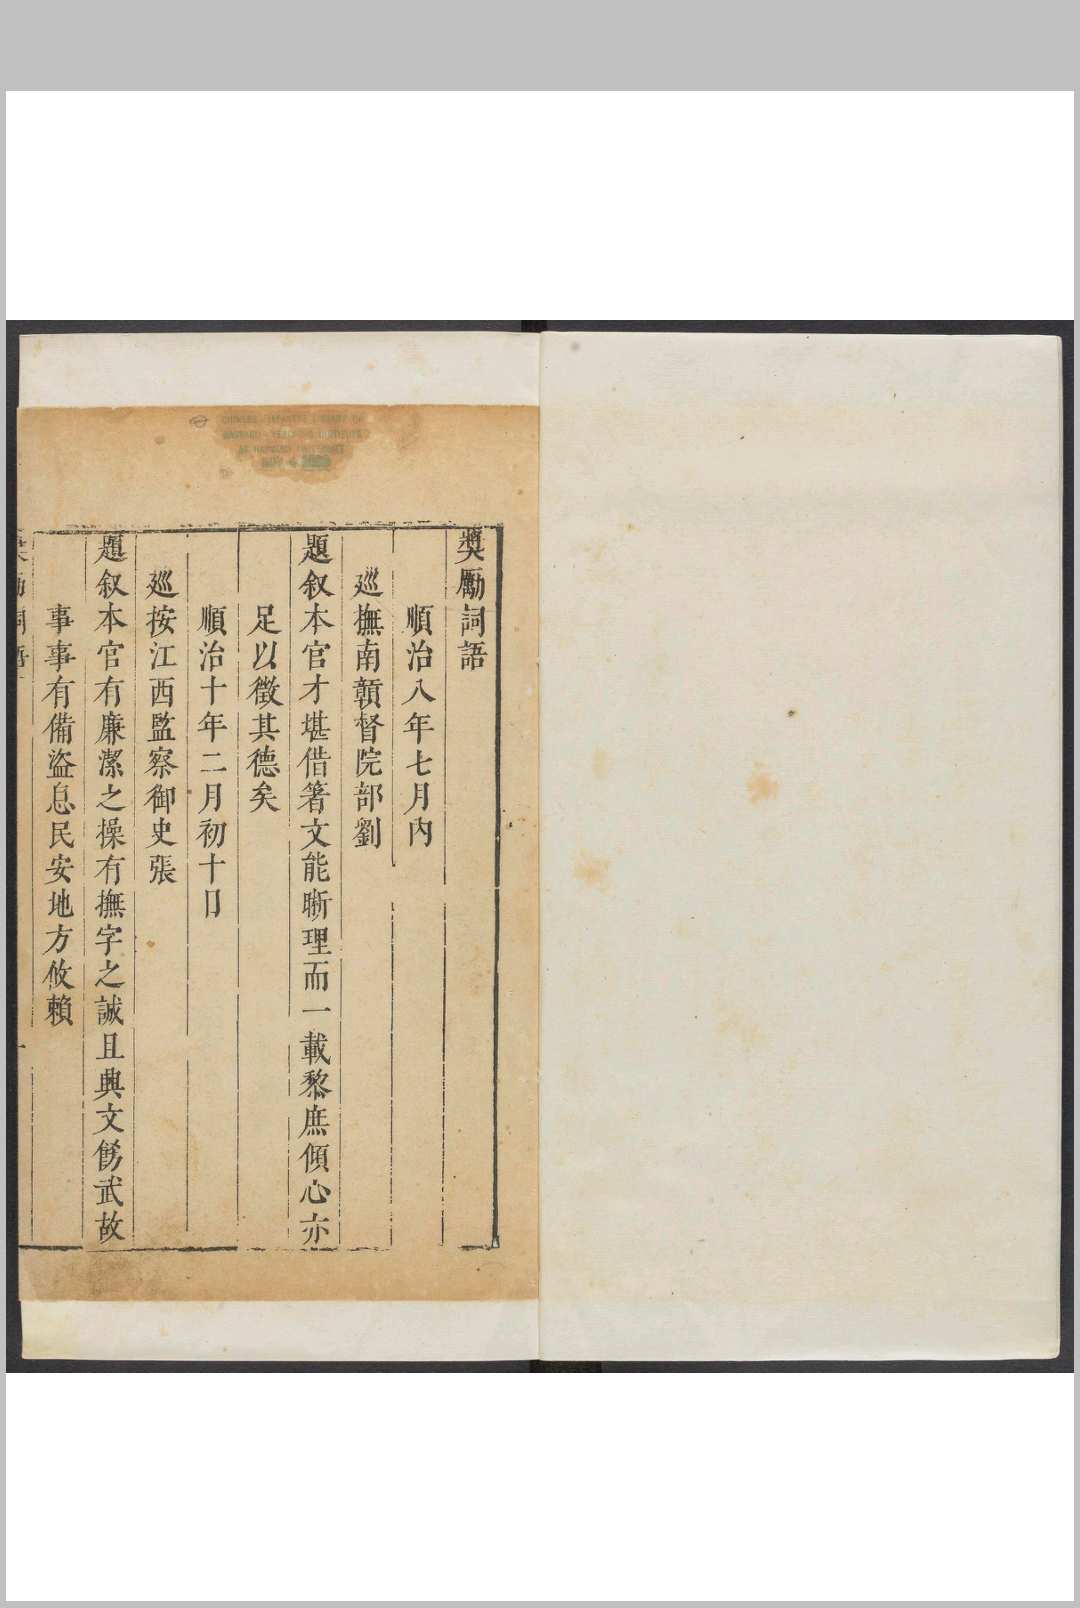 獎勵詞語
順治八年七月內
廵撫南贛督院部劉
題叙本官才堪借箸文能晰理而一載黎庶傾心亦
足以徵其德矣
順治十年二月初十日
廵按江西監察御史張
題叙本官有廉潔之操有撫字之誠且興文飭武故
事事有備盜息民安地方攸賴